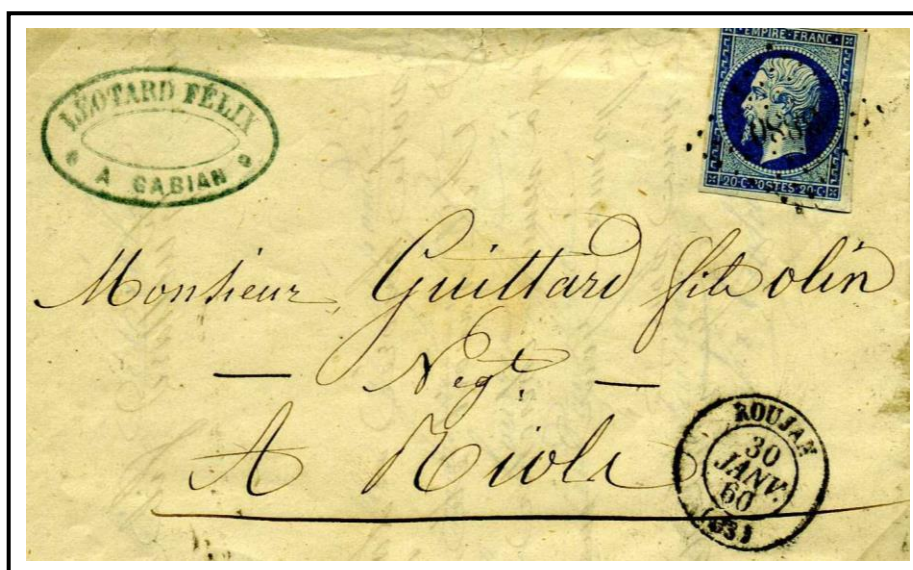 LÉOTARD FÉLIX
A GABIAN
EMPIRE · FRANC ·
20·C· POSTES 20·C·
Monsieur Guittard fils
— Negt. —
A
ROUJAN
30
JANV.
60